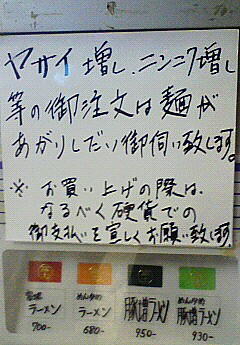 ヤサイ増し、ニンニク増し
等の御注文は麺が
あがりしだい御伺い致します。
※ お買い上げの際は、
なるべく硬貨での
御支払いを宜しくお願い致します
ラーメン
700-
めんかため
ラーメン
680-
豚増ラーメン
950-
めんかため
豚増ラーメン
930-